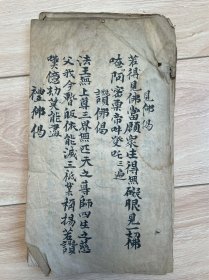 見佛偈
若得見佛當願衆生得無礙眼見一切佛
唵阿密栗帝吽癹吒三遍
讃佛偈
法王無上尊三界無匹天之導師四生之慈
父我今暫皈依能滅三祇業稱揚若讃
嘆億劫莫能盡
禮佛偈